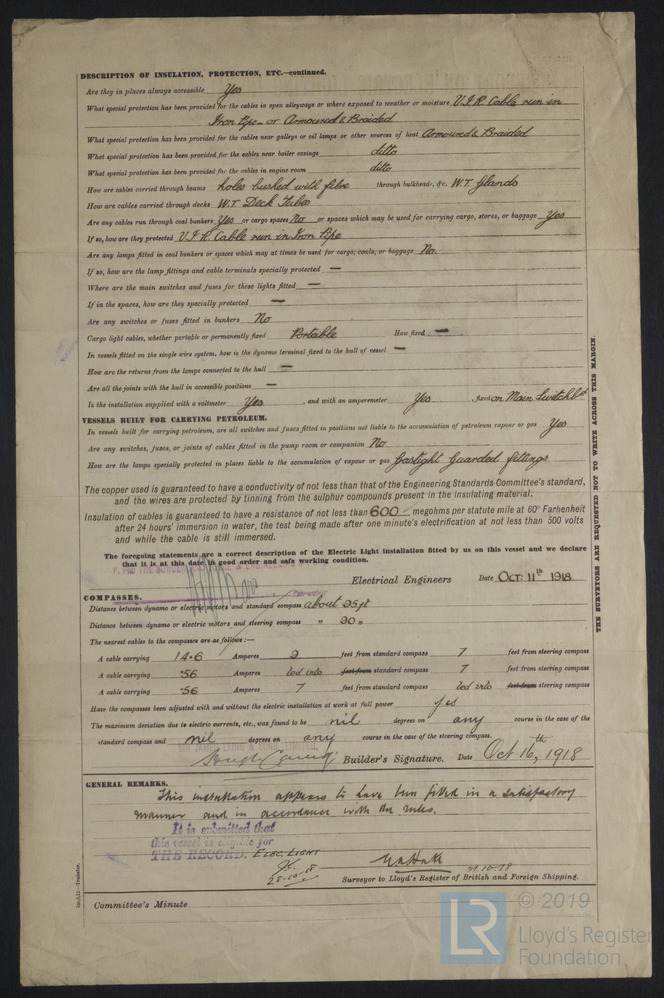 DESCRIPTION OF INSULATION, PROTECTION, ETC.—continued.
Are they in places always accessible Yes
What special protection has been provided for the cables in open alleyways or where exposed to weather or moisture V.I.R. Cable run in
Iron Pipe or Armoured & Braided
What special protection has been provided for the cables near galleys or oil lamps or other sources of heat Armoured & Braided
What special protection has been provided for the cables near boiler casings ditto
What special protection has been provided for the cables in engine room ditto
How are cables carried through beams holes bushed with fibre through bulkheads, &c. W.T. Glands
How are cables carried through decks W.T. Deck Tubes
Are any cables run through coal bunkers Yes or cargo spaces No or spaces which may be used for carrying cargo, stores, or baggage Yes
If so, how are they protected V.I.R. Cable run in Iron Pipe
Are any lamps fitted in coal bunkers or spaces which may at times be used for cargo, coals, or baggage No.
If so, how are the lamp fittings and cable terminals specially protected —
Where are the main switches and fuses for these lights fitted —
If in the spaces, how are they specially protected —
Are any switches or fuses fitted in bunkers No
Cargo light cables, whether portable or permanently fixed Portable How fixed —
In vessels fitted on the single wire system, how is the dynamo terminal fixed to the hull of vessel —
How are the returns from the lamps connected to the hull —
Are all the joints with the hull in accessible positions —
Is the installation supplied with a voltmeter Yes , and with an amperemeter Yes , fixed on Main Switchbd
VESSELS BUILT FOR CARRYING PETROLEUM.
In vessels built for carrying petroleum, are all switches and fuses fitted in positions not liable to the accumulation of petroleum vapour or gas Yes
Are any switches, fuses, or joints of cables fitted in the pump room or companion No
How are the lamps specially protected in places liable to the accumulation of vapour or gas Gastight Guarded fittings
The copper used is guaranteed to have a conductivity of not less than that of the Engineering Standards Committee's standard,
and the wires are protected by tinning from the sulphur compounds present in the insulating material.
Insulation of cables is guaranteed to have a resistance of not less than 600 megohms per statute mile at 60° Farhenheit
after 24 hours' immersion in water, the test being made after one minute's electrification at not less than 500 volts
and while the cable is still immersed.
The foregoing statements are a correct description of the Electric Light installation fitted by us on this vessel and we declare
that it is at this date in good order and safe working condition.
Electrical Engineers Date Oct. 11th 1918.
COMPASSES.
Distance between dynamo or electric motors and standard compass about 95 ft
Distance between dynamo or electric motors and steering compass " 90 "
The nearest cables to the compasses are as follows:—
A cable carrying 14.6 Amperes 9 feet from standard compass 7 feet from steering compass
A cable carrying .56 Amperes led into feet from standard compass 7 feet from steering compass
A cable carrying .56 Amperes 7 feet from standard compass led into feet from steering compass
Have the compasses been adjusted with and without the electric installation at work at full power Yes
The maximum deviation due to electric currents, etc., was found to be nil degrees on any course in the case of the
standard compass and nil degrees on any course in the case of the steering compass.
Builder's Signature. Date Oct 16th, 1918
GENERAL REMARKS.
This installation appears to have been fitted in a satisfactory
manner and in accordance with the rules.
It is submitted that
this vessel is eligible for
THE RECORD. ELEC. LIGHT
28-10-18
31-10-18
Surveyor to Lloyd's Register of British and Foreign Shipping.
Committee's Minute
THE SURVEYORS ARE REQUESTED NOT TO WRITE ACROSS THIS MARGIN.
LR
© 2019
Lloyd's Register
Foundation